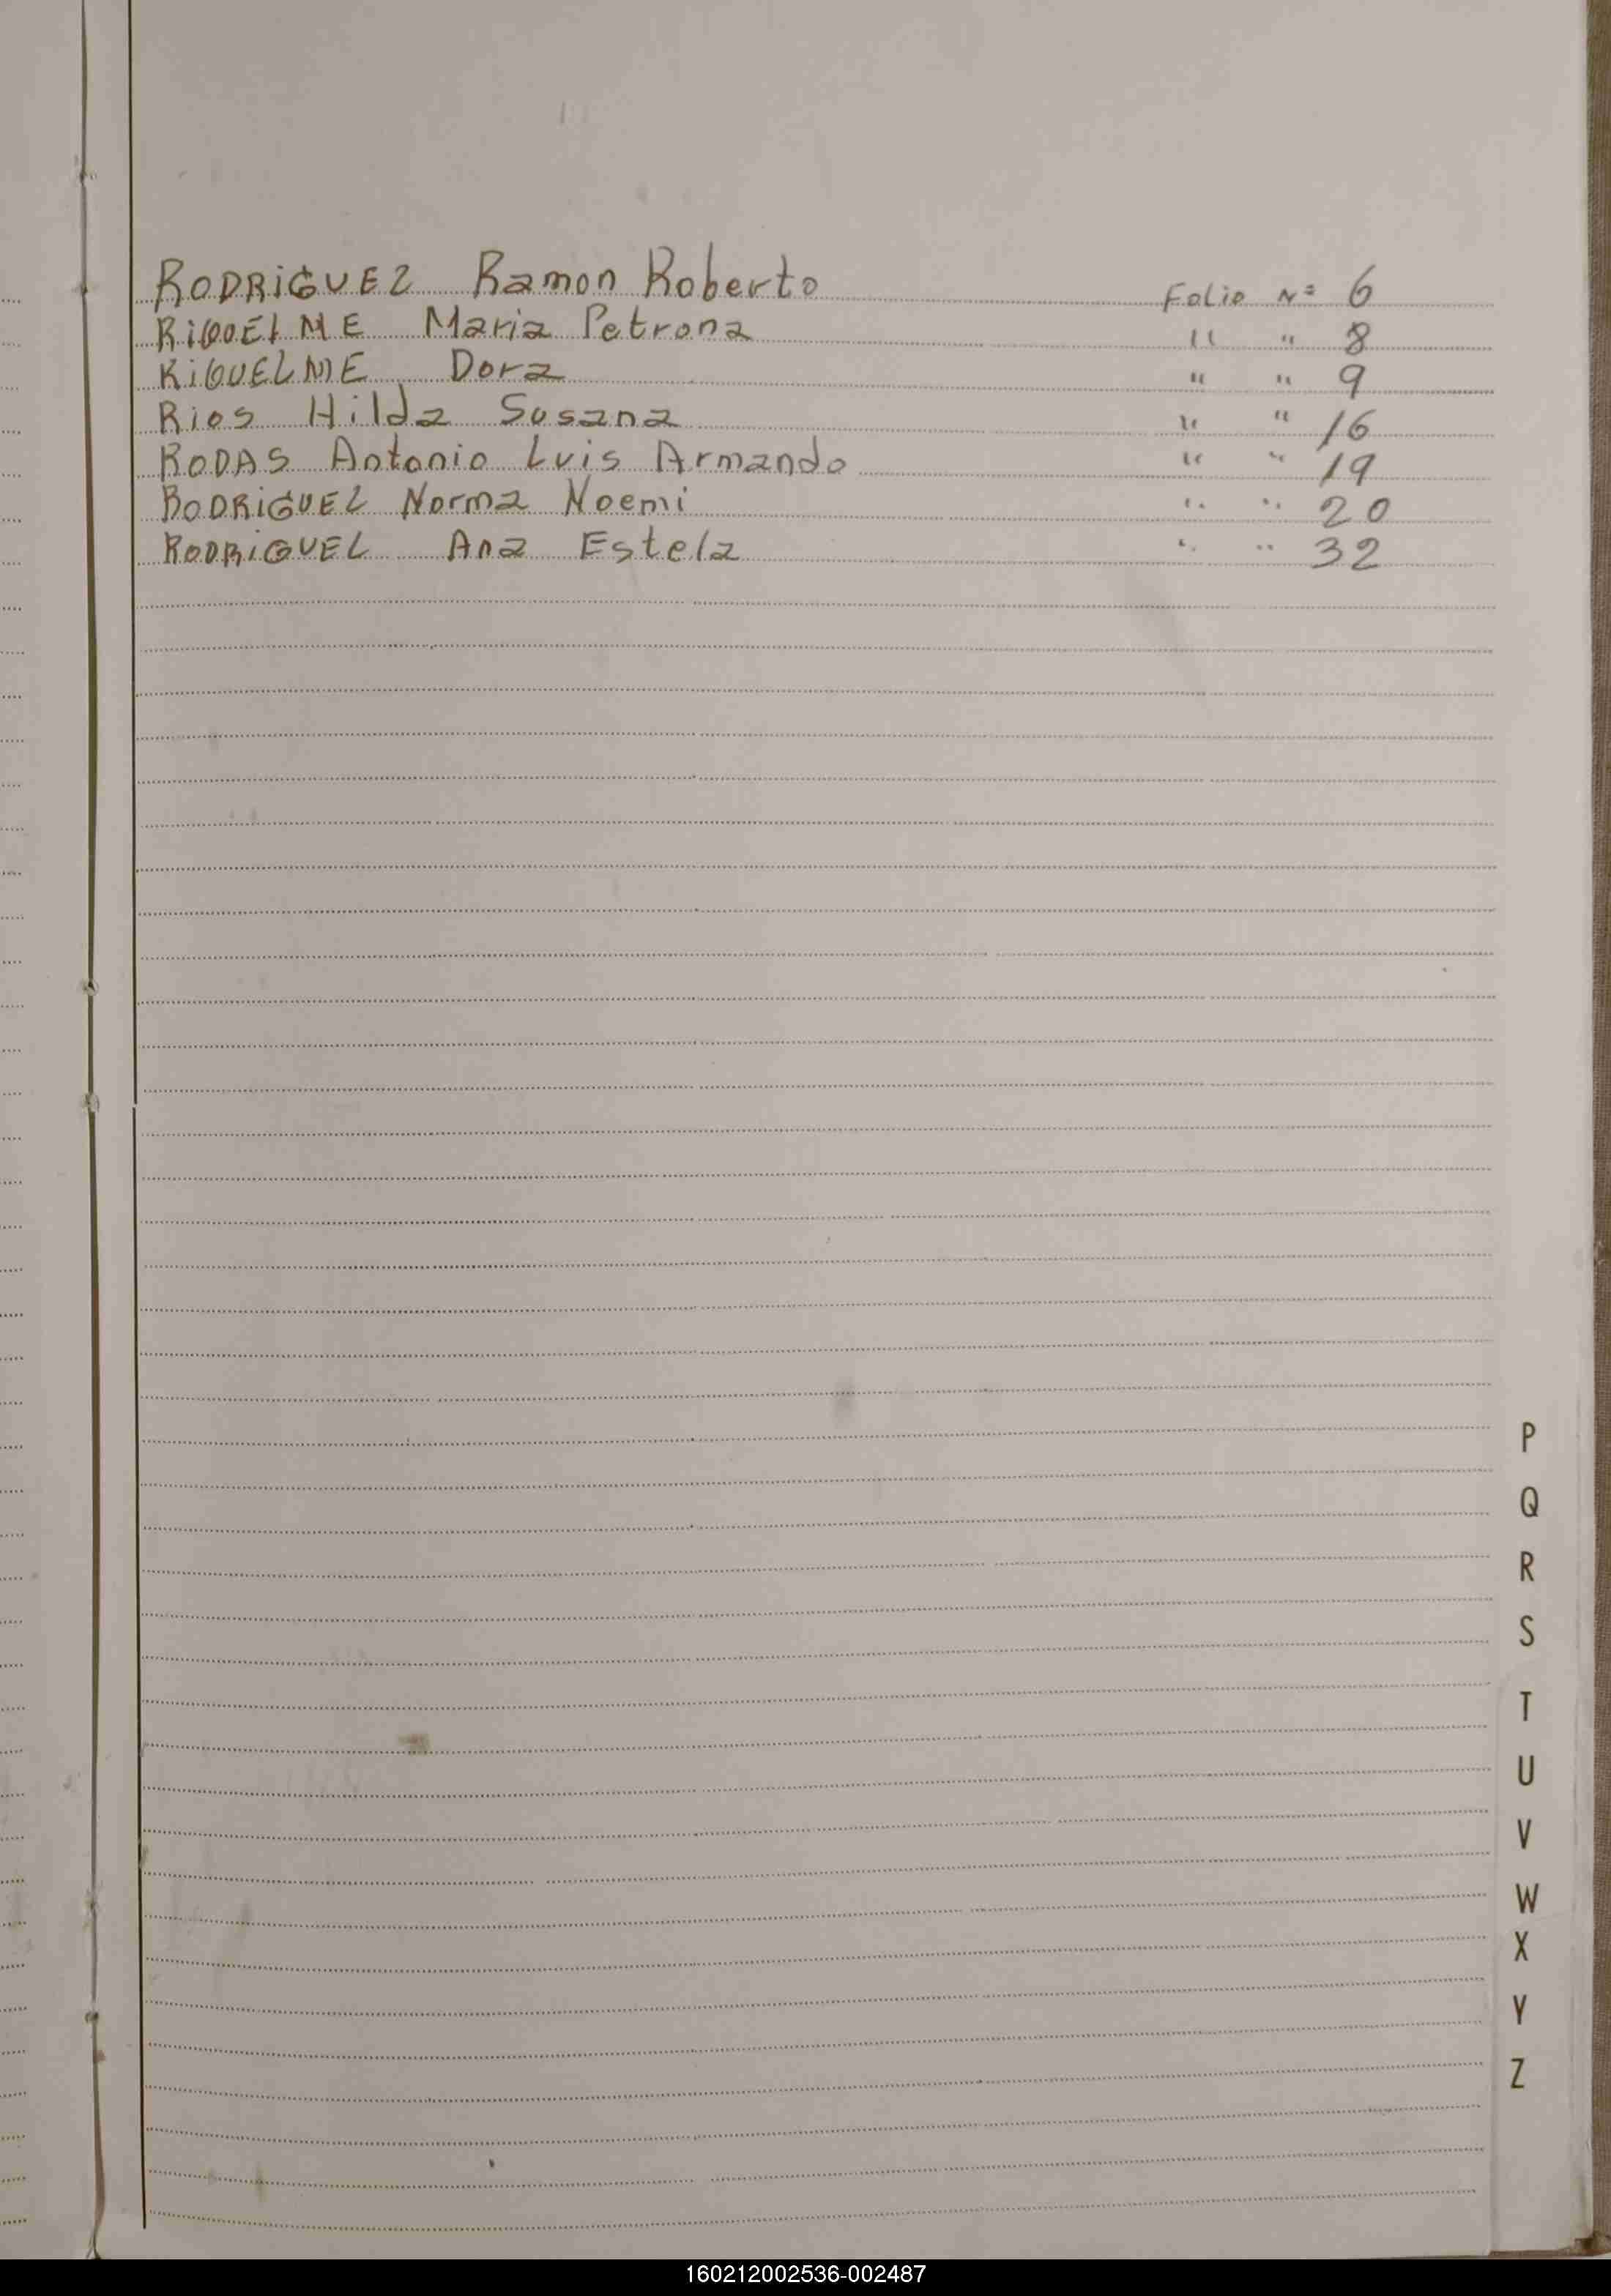 RODRIGUEZ Ramon Roberto Folio Nº 6
RIQUELME Maria Petrona " " 8
RIQUELME Dora " " 9
Rios Hilda Susana " " 16
RODAS Antonio Luis Armando " " 19
RODRIGUEZ Norma Noemi " " 20
RODRIGUEZ Ana Estela " " 32
P
Q
R
S
T
U
V
W
X
Y
Z
160212002536-002487